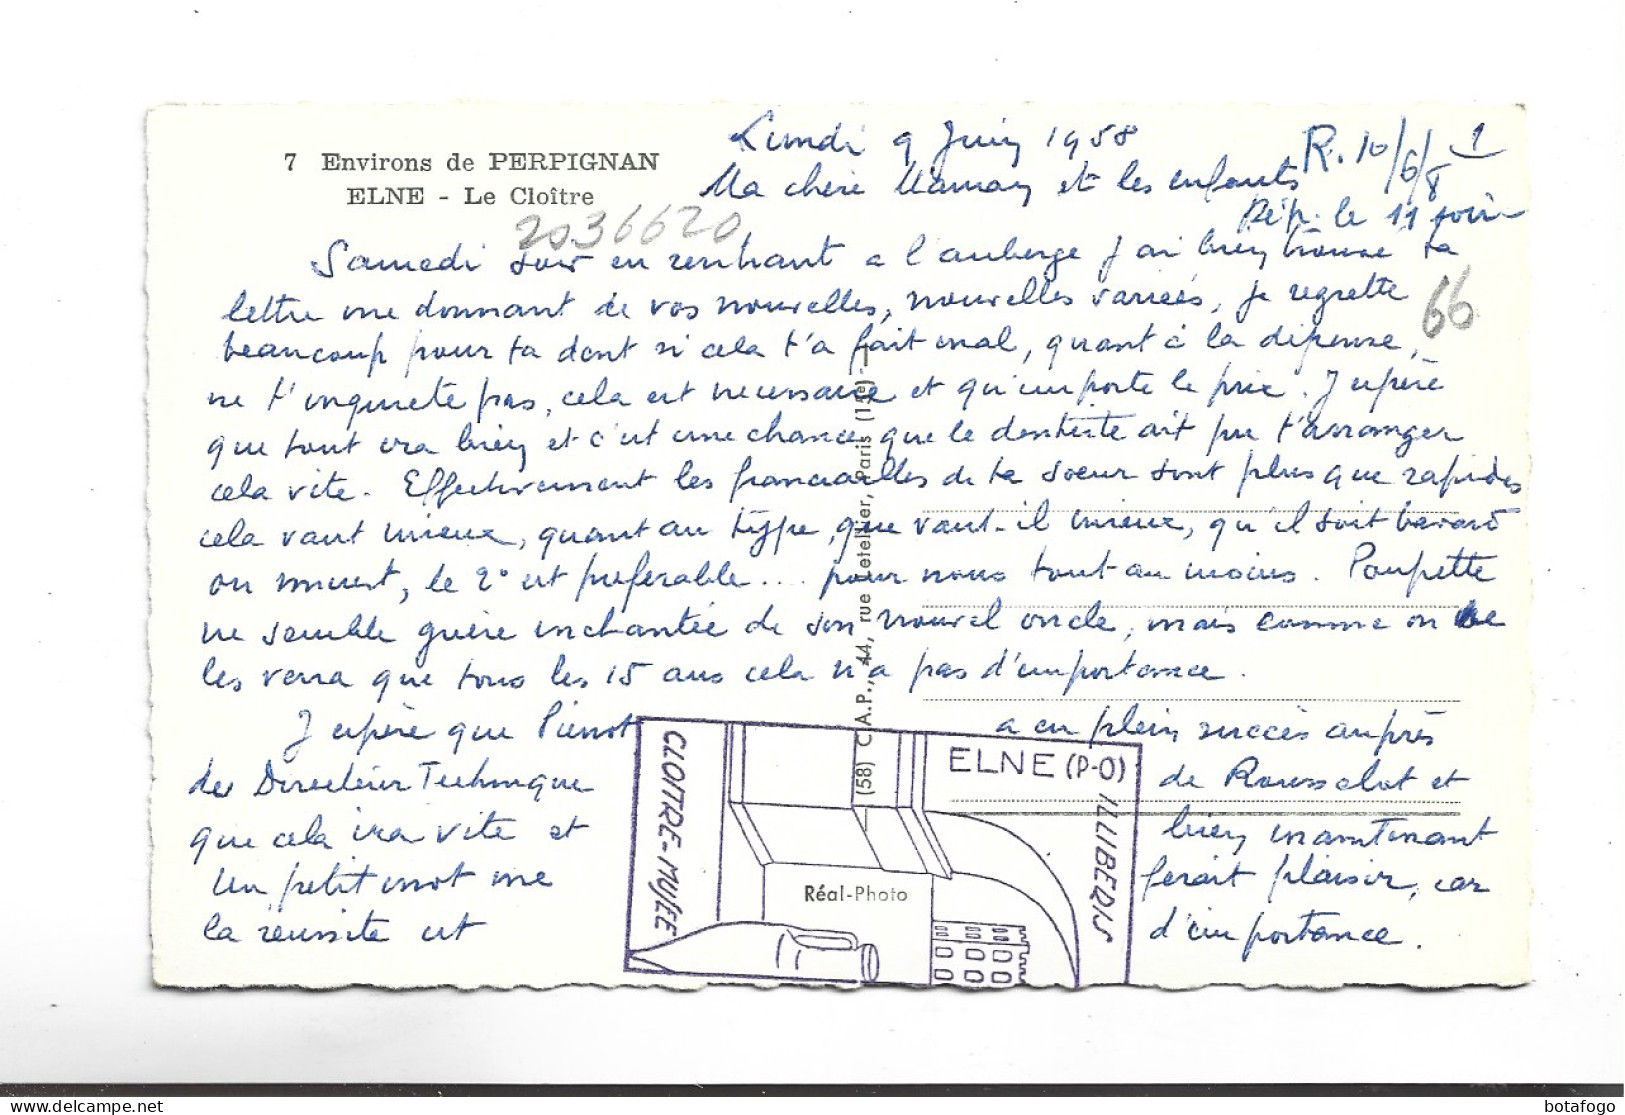 7 Environs de PERPIGNAN
ELNE - Le Cloître
Lundi 9 Juin 1958
R. 10/6/8 1
Ma chère Maman et les enfants
Rép. le 11 soir
2036620
Samedi soir en rentrant a l'auberge j'ai bien trouvé ta
lettre me donnant de vos nouvelles, nouvelles variées, je regrette
66
beaucoup pour ta dent si cela t'a fait mal, quant à la dépense,
ne t'inquiete pas, cela est necessaire et qu'importe le prix. J'espère
que tout ira bien et c'est une chance que le dentiste ait pu t'arranger
cela vite. Effectivement les fiancailles de ta soeur sont plus que rapides
cela vaut mieux, quant au type, que vaut-il mieux, qu'il soit bavard
ou muet, le 2° est preferable.... pour nous tout au moins. Poupette
ne semble guère enchantée de son nouvel oncle, mais comme on ne
les verra que tous les 15 ans cela n'a pas d'importance.
J'espère que Pierrot a eu plein succès auprès
des Directeur Technique de Rousselot et
que cela ira vite et bien maintenant
Un petit mot me ferait plaisir, car
la réussite est d'importance.
(58) C.A.P., 44, rue Letellier, Paris (15e)
CLOITRE-MUSÉE
ELNE (P-O)
ILLIBERIS
Réal-Photo
botafogo